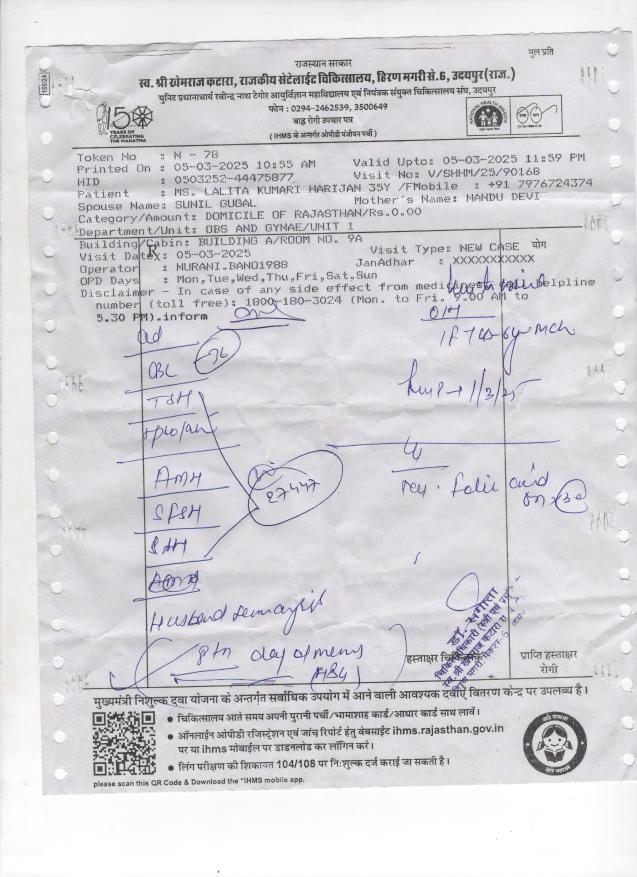 मुल प्रति
राजस्थान सरकार
स्व. श्री खेमराज कटारा, राजकीय सेटेलाईट चिकित्सालय, हिरण मगरी से.6, उदयपुर (राज.)
युनिट प्रधानाचार्य रवीन्द्र नाथ टेगोर आयुर्विज्ञान महाविद्यालय एवं नियंत्रक संयुक्त चिकित्सालय संघ, उदयपुर
फोन : 0294-2462539, 3500649
बाह्य रोगी उपचार पत्र
( IHMS के अन्तर्गत ओपीडी पंजीयन पर्ची )
150
YEARS OF
CELEBRATING
THE MAHATMA
NATIONAL HEALTH MISSION
Token No : N - 78
Printed On : 05-03-2025 10:55 AM Valid Upto: 05-03-2025 11:59 PM
HID : 0503252-44475877 Visit No: V/SHHM/25/90168
Patient : MS. LALITA KUMARI HARIJAN 35Y /F Mobile : +91 7976724374
Spouse Name: SUNIL GUGAL Mother's Name: NANDU DEVI
Category/Amount: DOMICILE OF RAJASTHAN/Rs.0.00
Department/Unit: OBS AND GYNAE/UNIT 1
Building/Cabin: BUILDING A/ROOM NO. 9A
Visit Date : 05-03-2025 Visit Type: NEW CASE योग
Operator : NURANI.BANO1988 JanAdhar : XXXXXXXXXXX
OPD Days : Mon,Tue,Wed,Thu,Fri,Sat,Sun
Disclaimer - In case of any side effect from medicines helpline
number (toll free): 1800-180-3024 (Mon. to Fri. 9.00 AM to
5.30 PM).inform
O/H
ad
CBC
TSH
LMP → 1/3/25
AMH
27447
Folic acid
S FSH
S LH
Husband semen
8th day of mens
(HSG)
हस्ताक्षर
प्राप्ति हस्ताक्षर
रोगी
मुख्यमंत्री निशुल्क दवा योजना के अन्तर्गत सर्वाधिक उपयोग में आने वाली आवश्यक दवाऐं वितरण केन्द्र पर उपलब्ध है।
• चिकित्सालय आते समय अपनी पुरानी पर्ची/भामाशाह कार्ड/आधार कार्ड साथ लावें।
• ऑनलाईन ओपीडी रजिस्ट्रेशन एवं जांच रिपोर्ट हेतु वेबसाईट ihms.rajasthan.gov.in
पर या ihms मोबाईल पर डाउनलोड कर लॉगिन करे।
• लिंग परीक्षण की शिकायत 104/108 पर नि:शुल्क दर्ज कराई जा सकती है।
please scan this QR Code & Download the "iHMS mobile app.